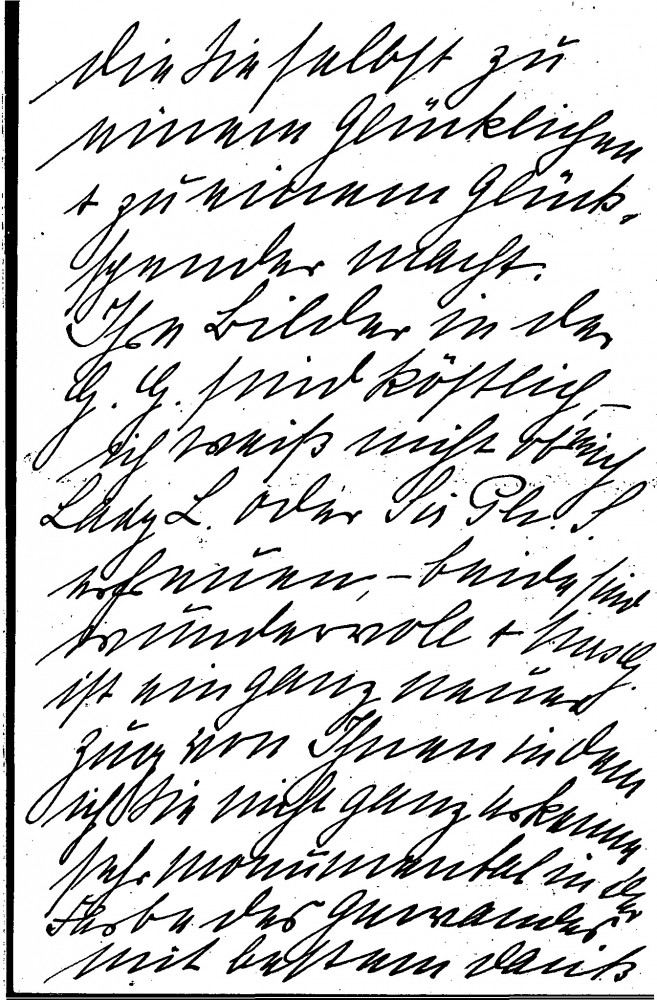 die Sie selbst zu
einem Glücklichen
+ zu einem Glück-
spender macht.
Ihre Bilder in der
G. G. sind köstlich, –
ich weiß nicht ob mich
Lady L. oder Sir Ph. S.
erfreuen, – beide sind
wundervoll +
ist ein ganz neuer
Zug von Ihnen in dem
ich Sie nicht ganz erkenne
sehr monumental in der
Farbe des Gewandes
mit bestem Dank